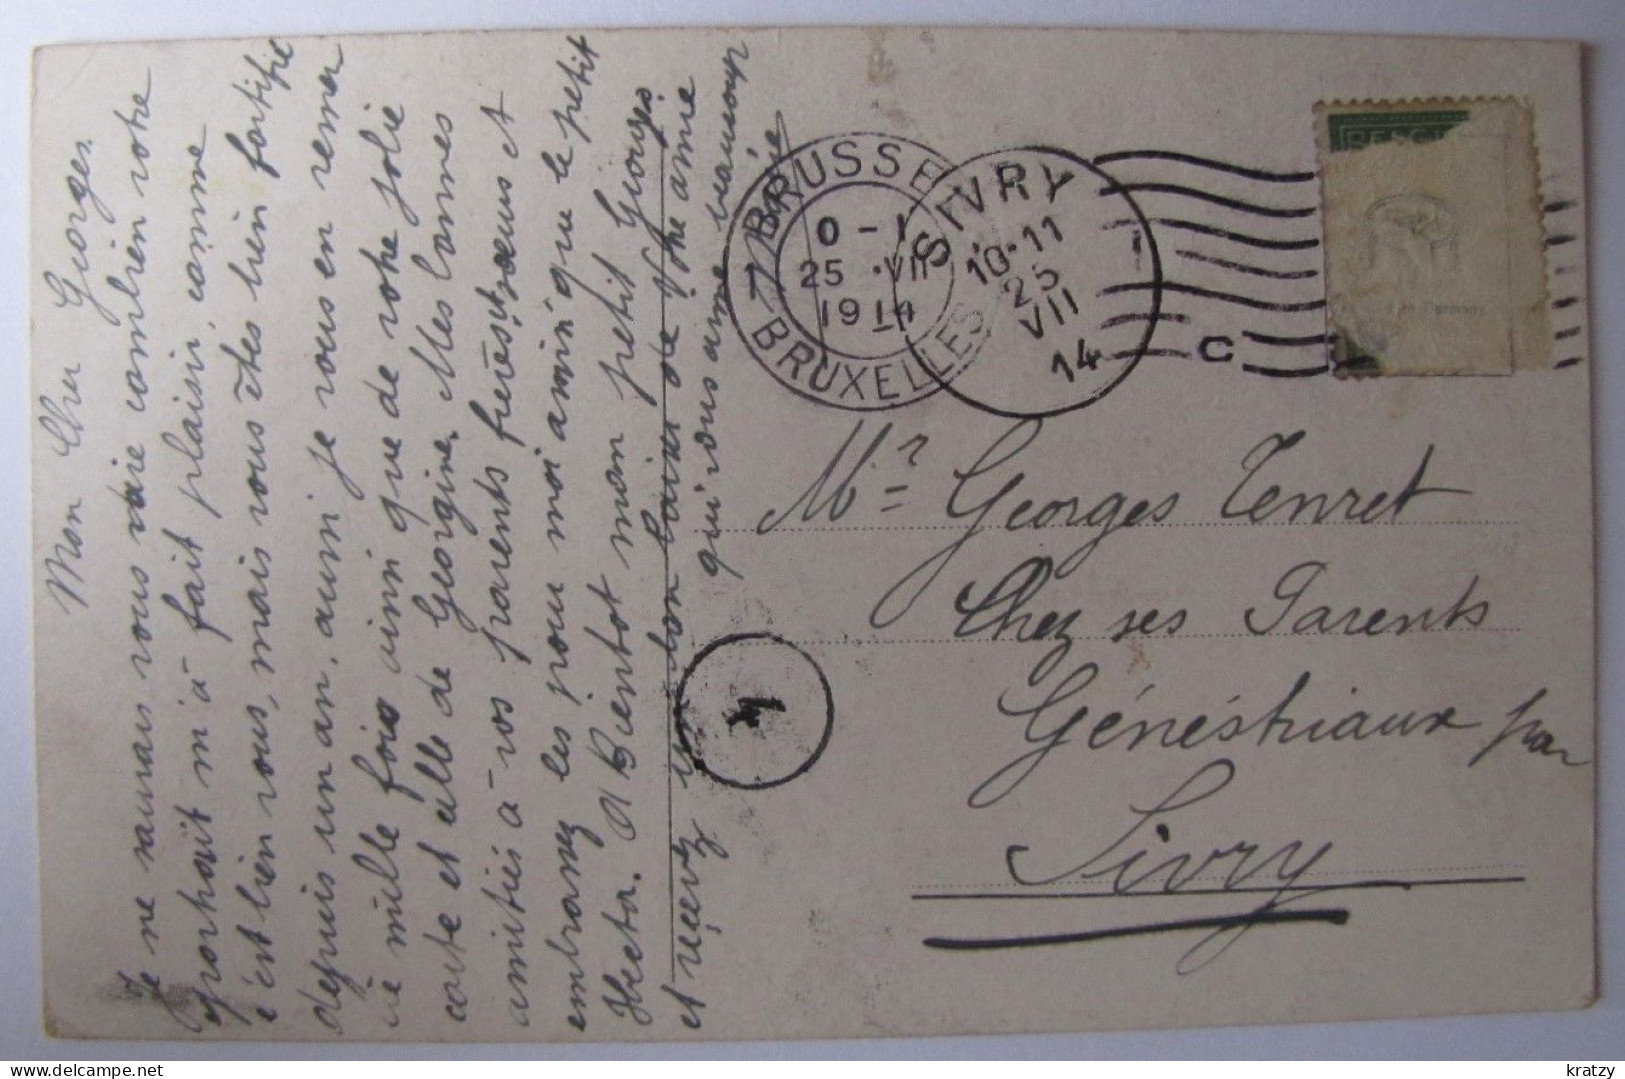 Mon Cher Georges.
Je ne saurais vous dire combien votre
portrait m'à fait plaisir, comme
c'est bien vous, mais vous êtes bien fortifié
depuis un an, aussi je vous en remer
cie mille fois ainsi que de votre jolie
carte et celle de Georgine. Mes bonnes
amitiés à vos parents frères et sœurs et
embrassez les pour moi ainsi que le petit
Hector. A Bientot mon petit Georges
et recevez un bon baiser de votre amie
qui vous aime beaucoup
Maria
BRUSSEL
0-1
25 VII
1914
BRUXELLES
1
SIVRY
10-11
25
VII
14
C
BELGI
Mr Georges Tenret
Chez ses Parents
Généstriaux par
Sivry
4
kratzy